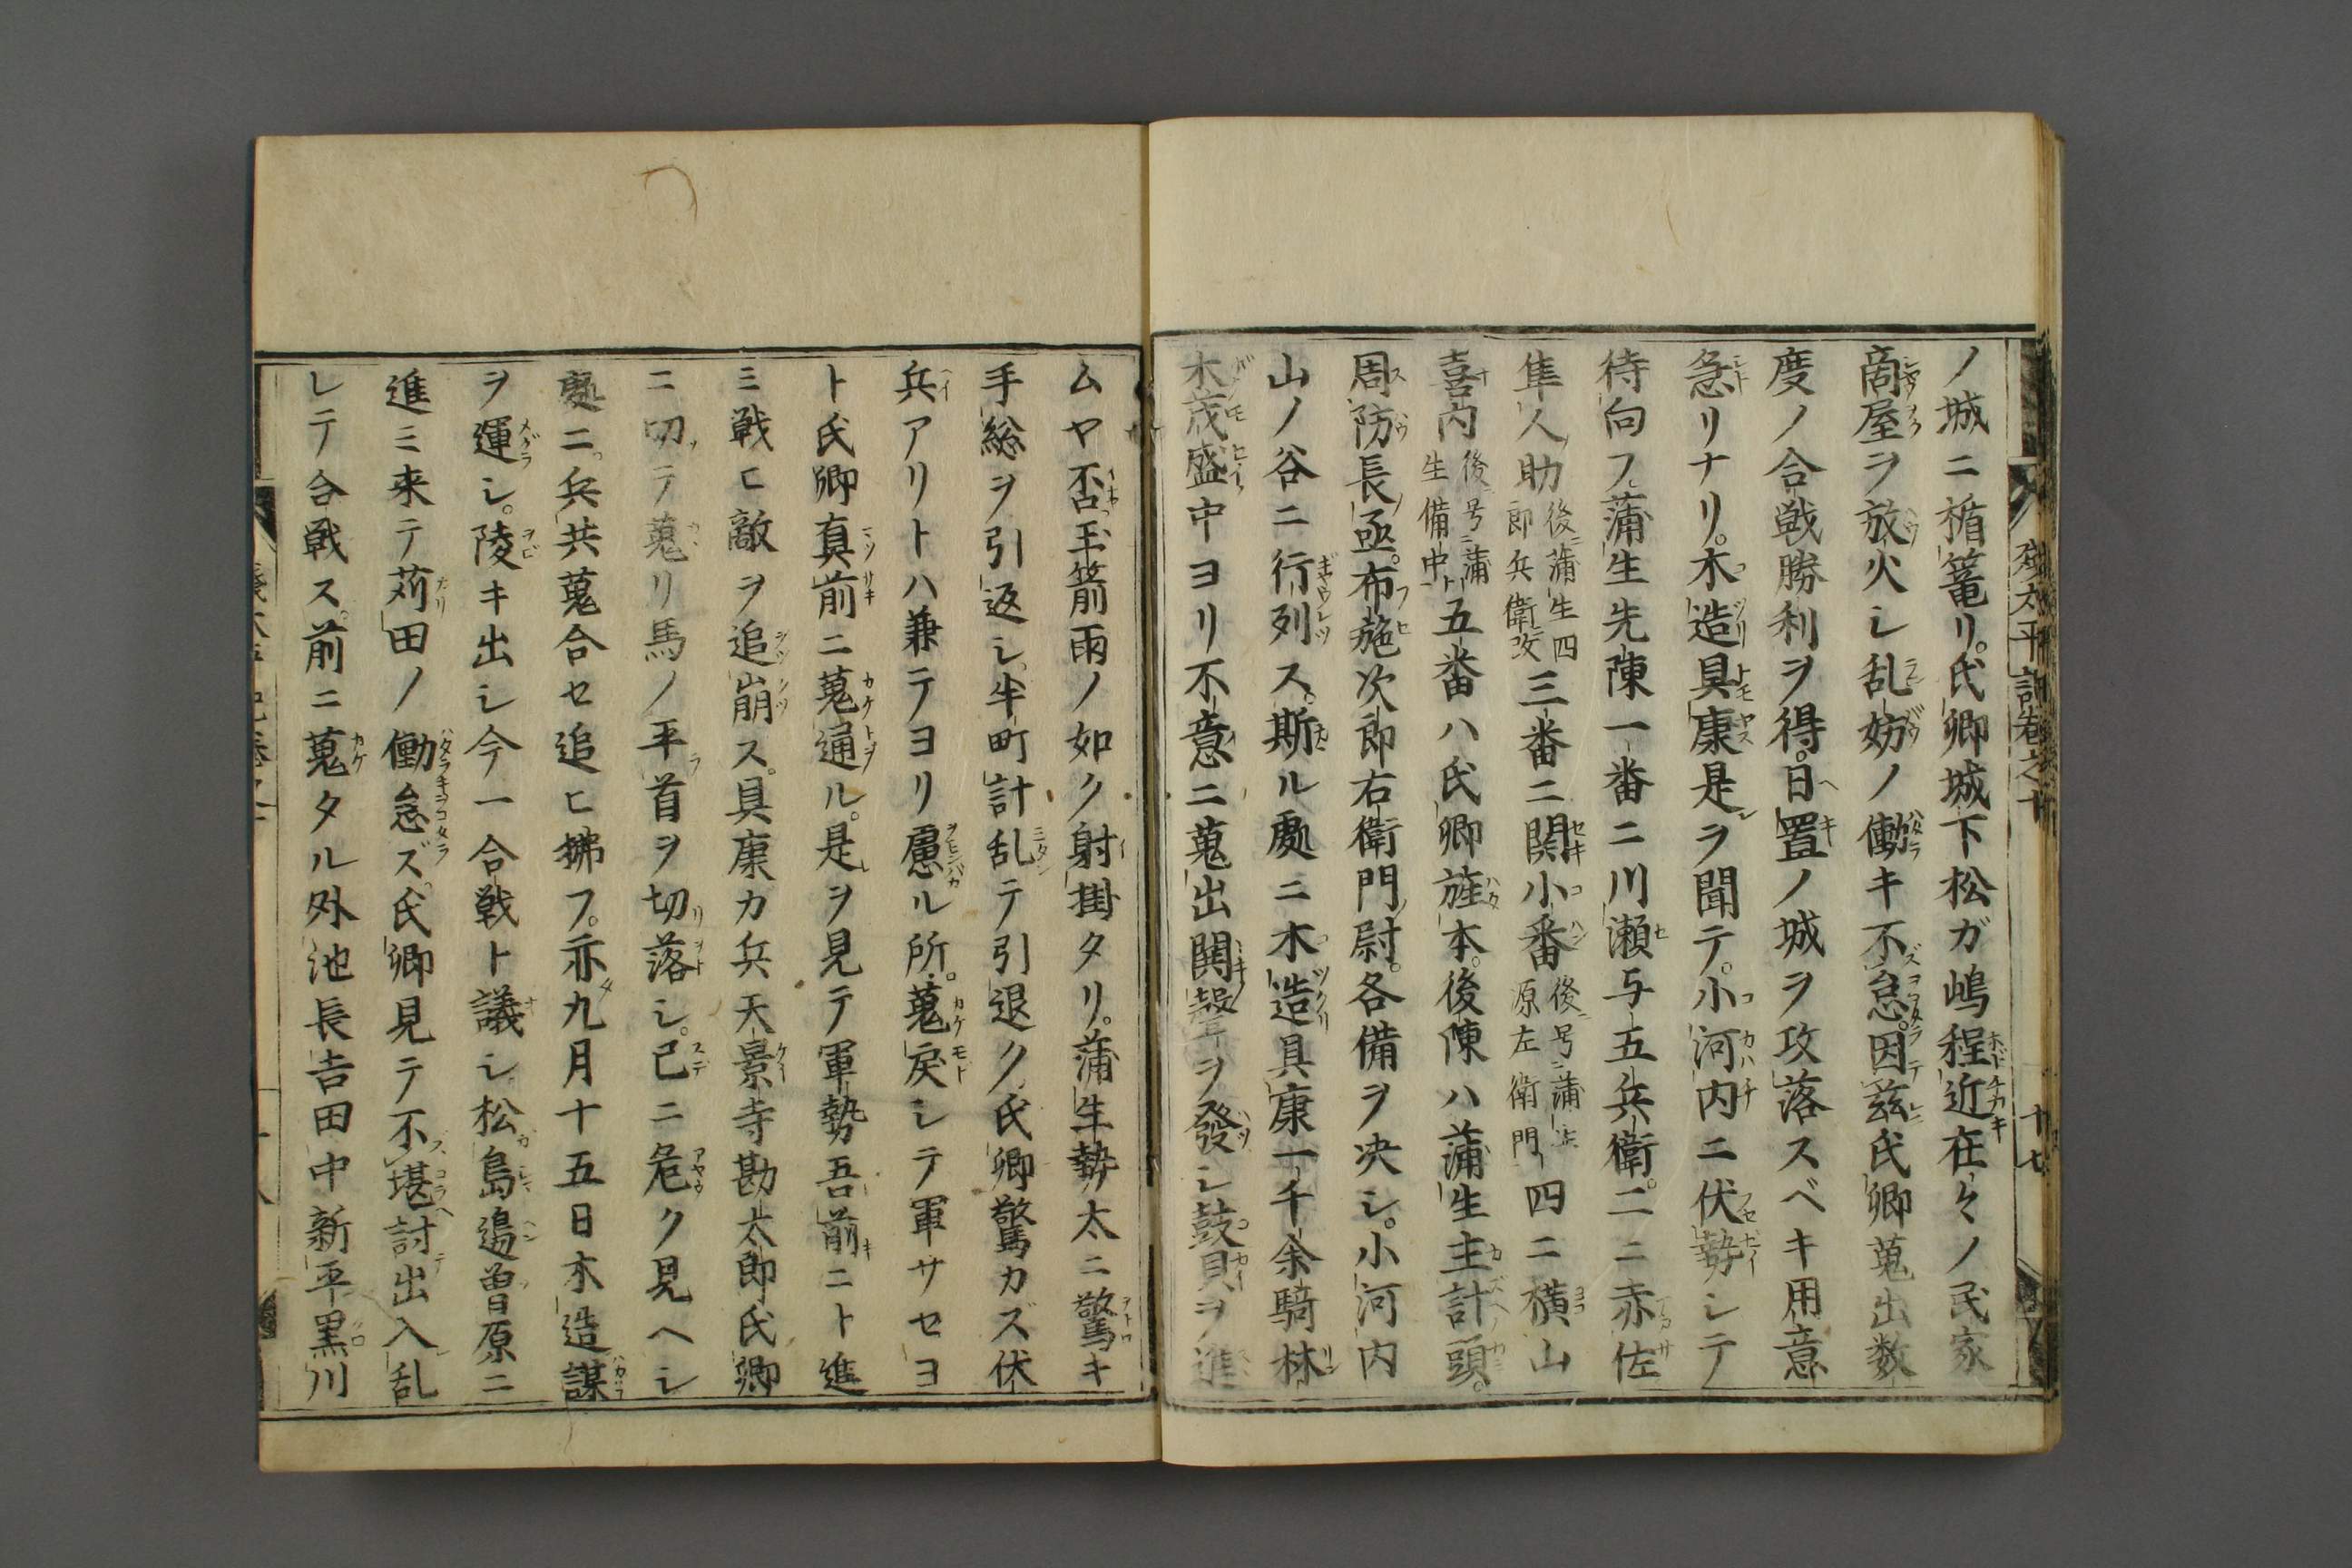 ノ城ニ楯篭リ。氏卿城下松ガ嶋程近在々ノ民家
商屋ヲ放火シ乱妨ノ働キ不怠。因茲氏卿蒐出数
度ノ合戦勝利ヲ得。日置ノ城ヲ攻落スベキ用意
急リナリ。木造具康是ヲ聞テ。小河内ニ伏勢シテ
待向フ。蒲生先陳一番ニ川瀬与五兵衛。二ニ赤佐
隼人助後ニ蒲生四郎兵衛改三番ニ関小番後ニ号ニ蒲生源左衛門四ニ横山
喜内後ニ号ニ蒲生備中ト五番ハ氏卿旌本。後陳ハ蒲生主計頭。
周防長亟。布施次郎右衛門尉。各備ヲ决シ。小河内
山ノ谷ニ行列ス。斯ル處ニ木造具康一千余騎林
木茂盛中ヨリ不意ニ蒐出鬨聲ヲ發シ鼓貝ヲ進
ムヤ否玉箭雨ノ如ク射掛タリ。蒲生勢太ニ驚キ
手総ヲ引返シ半町計乱テ引退ク氏卿驚カズ伏
兵アリトハ兼テヨリ慮ル所。蒐戻シテ軍サセヨ
ト氏卿真前ニ蒐通ル。是ヲ見テ軍勢吾前ニト進
ミ戦ヒ敵ヲ追崩ス。具康カ兵天景寺勘太郎氏卿
ニ切テ蒐リ馬ノ平首ヲ切落シ。已ニ危ク見ヘシ
處ニ。兵共蒐合セ追ヒ拂フ。亦九月十五日木造謀
ヲ運シ。陵キ出シ今一合戦ト議シ松島邉曽原ニ
進ミ来テ苅田ノ働怠ズ。氏卿見テ不堪討出入乱
レテ合戦ス。前ニ蒐タル外池長吉田中新平黒川